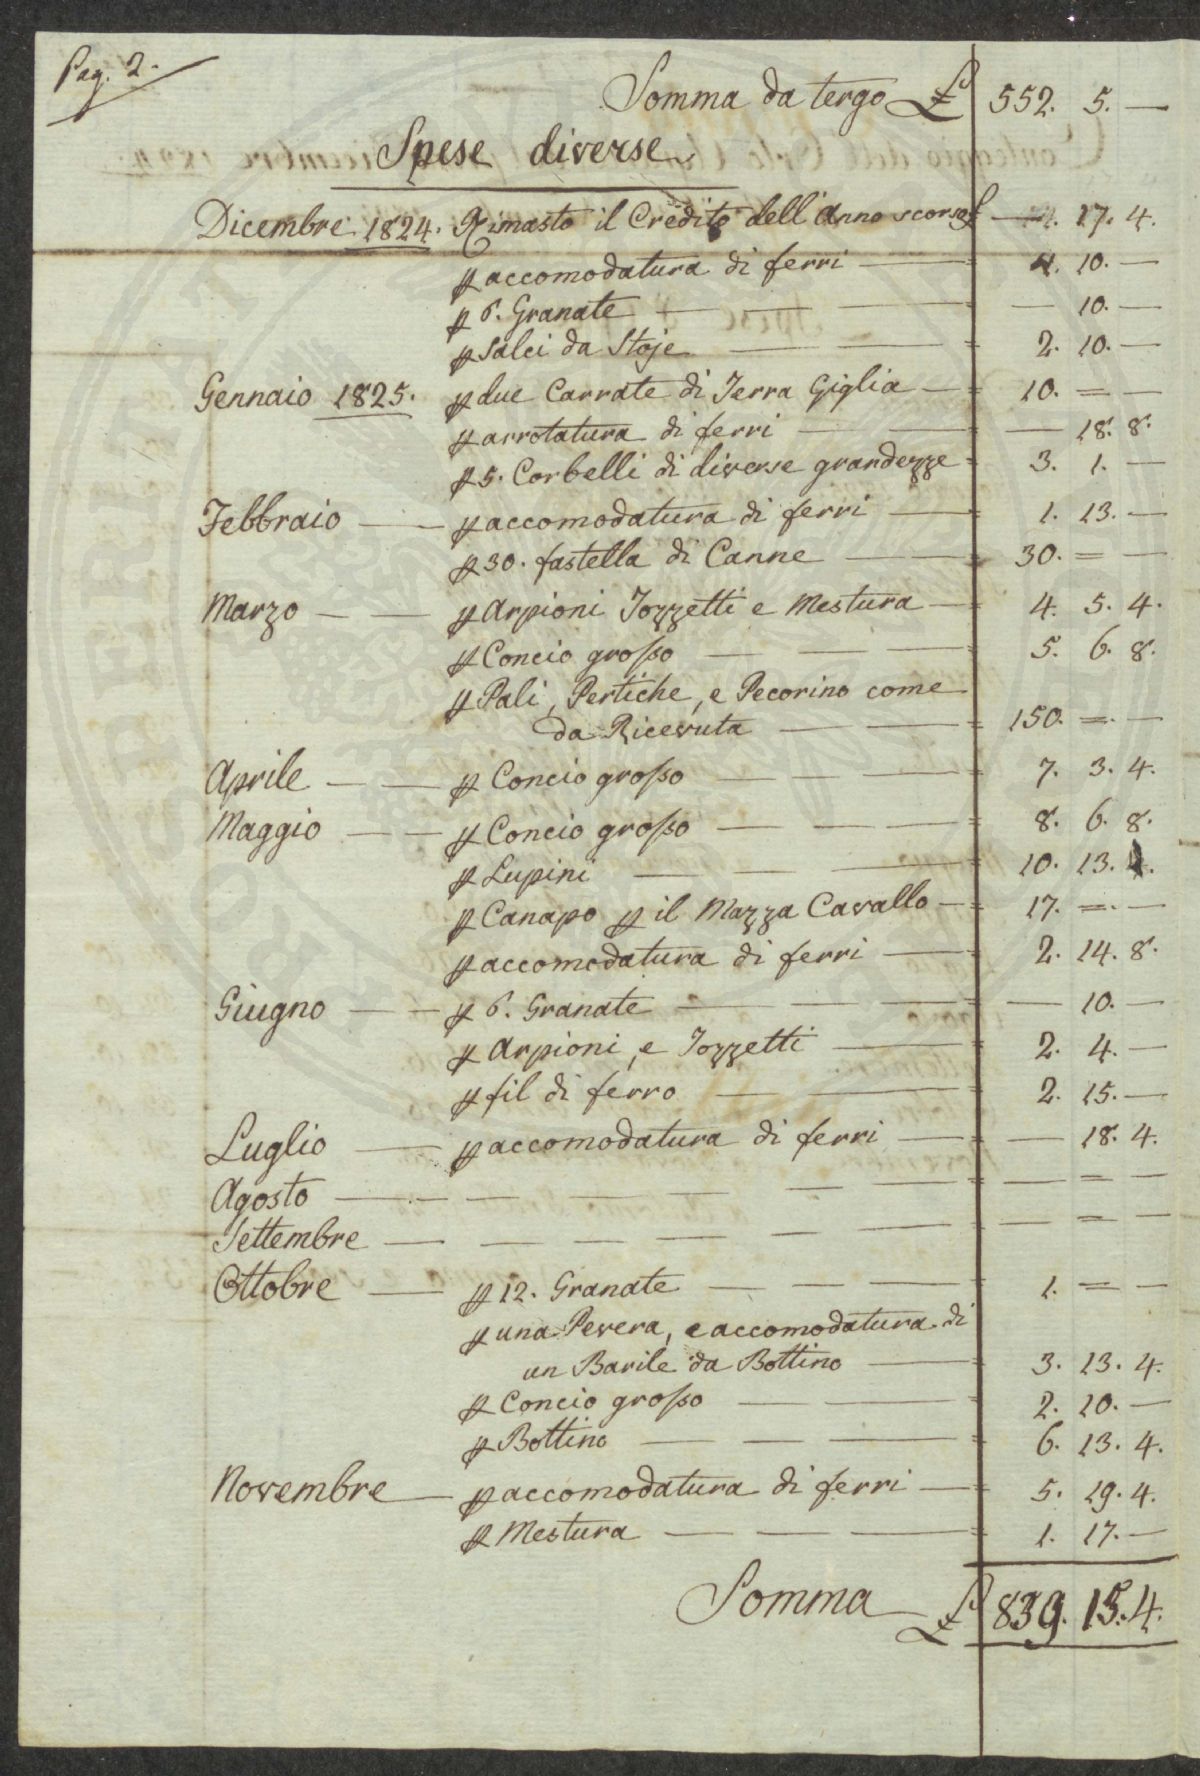 Pag. 2.
Somma da tergo £ 552. 5. —
Spese diverse
Dicembre 1824. Rimasto il Credito dell'Anno scorso £ — 17. 4.
p accomodatura di ferri — 4. 10. —
p 6. Granate — — 10. —
p Salci da Stoje — 2. 10. —
Gennaio 1825. p due Carrate di Terra Giglia — 10. = —
p arrotatura di ferri — — 18. 8.
p 5. Corbelli di diverse grandezze 3. 1. —
Febbraio — p accomodatura di ferri — 1. 13. —
p 30. fastella di Canne — 30. = —
Marzo — p Arpioni Tozzetti e Mestura — 4. 5. 4.
p Concio grosso — 5. 6. 8.
p Pali, Pertiche, e Pecorino come
da Ricevuta — 150. = —
Aprile — p Concio grosso — 7. 3. 4.
Maggio — p Concio grosso — 8. 6. 8.
p Lupini — 10. 13. 4.
p Canapo p il Mazza Cavallo — 17. = —
p accomodatura di ferri — 2. 14. 8.
Giugno — p 6. Granate — — 10. —
p Arpioni, e Tozzetti — 2. 4. —
p fil di ferro — 2. 15. —
Luglio — p accomodatura di ferri — — 18. 4.
Agosto — — = —
Settembre — — = —
Ottobre — p 12. Granate — 1. = —
p una Pevera, e accomodatura di
un Barile da Bottino — 3. 13. 4.
p Concio grosso — 2. 10. —
p Bottino — 6. 13. 4.
Novembre — p accomodatura di ferri — 5. 19. 4.
p Mestura — 1. 17. —
Somma £ 839. 15. 4.